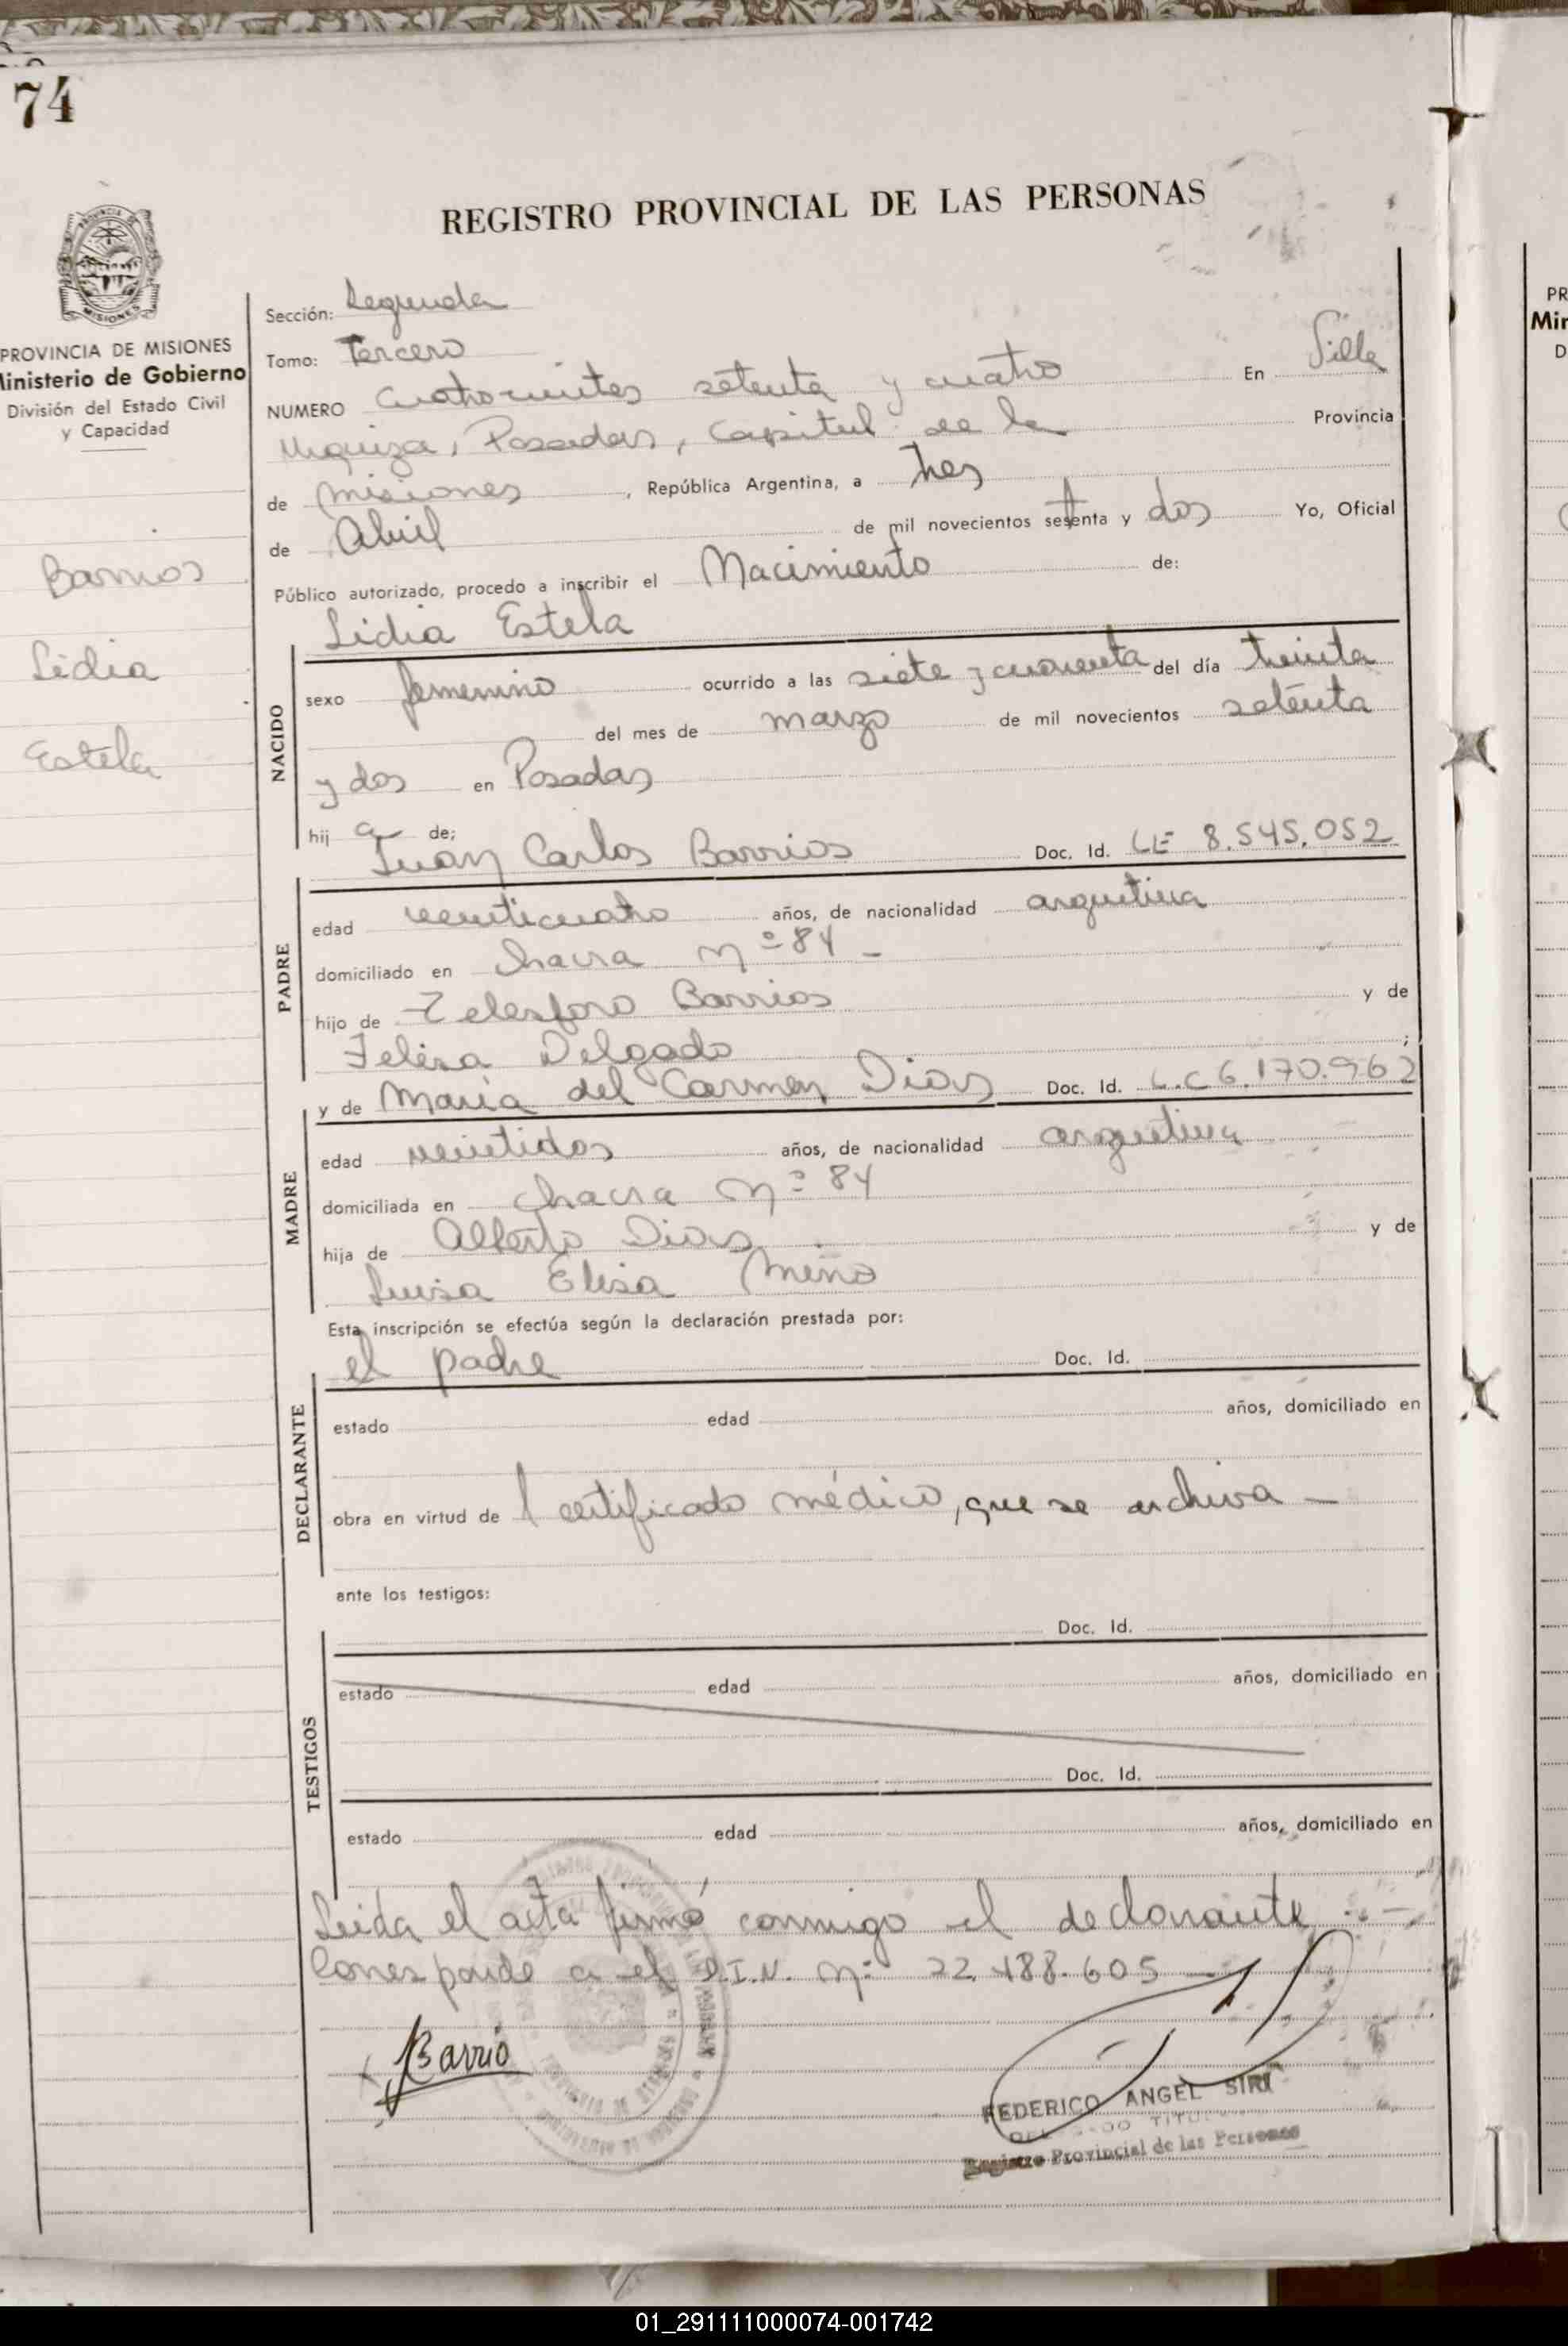 74
REGISTRO PROVINCIAL DE LAS PERSONAS
PROVINCIA DE
MISIONES
PROVINCIA DE MISIONES
Ministerio de Gobierno
División del Estado Civil
y Capacidad
Barrios
Lidia
Estela
Sección: Segunda
Tomo: Tercero
NUMERO Cuatrocientos setenta y cuatro En Villa
Urquiza, Posadas, Capital de la Provincia
de Misiones, República Argentina, a tres
de Abril de mil novecientos setenta y dos Yo, Oficial
Público autorizado, procedo a inscribir el Nacimiento de:
Lidia Estela
NACIDO
sexo femenino ocurrido a las siete y cuarenta del día treinta
del mes de marzo de mil novecientos setenta
y dos en Posadas
hij a de;
Juan Carlos Barrios Doc. Id. LE 8.545.052
PADRE
edad veinticuatro años, de nacionalidad argentina
domiciliado en chacra nº 84 -
hijo de Telesforo Barrios y de
Felisa Delgado ;
y de María del Carmen Dias Doc. Id. L.C 6.170.962
MADRE
edad veintidos años, de nacionalidad argentina
domiciliada en chacra nº 84
hija de Alberto Dias y de
Luisa Elisa Mino
Esta inscripción se efectúa según la declaración prestada por:
el padre Doc. Id.
DECLARANTE
estado edad años, domiciliado en
obra en virtud de 1 certificado médico, que se archiva -
ante los testigos:
Doc. Id.
TESTIGOS
estado edad años, domiciliado en
Doc. Id.
estado edad años, domiciliado en
Leída el acta firmó conmigo el declarante . -
Corresponde a el D.I.N. nº 22.488.605 -
Barrio
FEDERICO ANGEL SIRI
Registro Provincial de las Personas
PR
Min
D
01_291111000074-001742